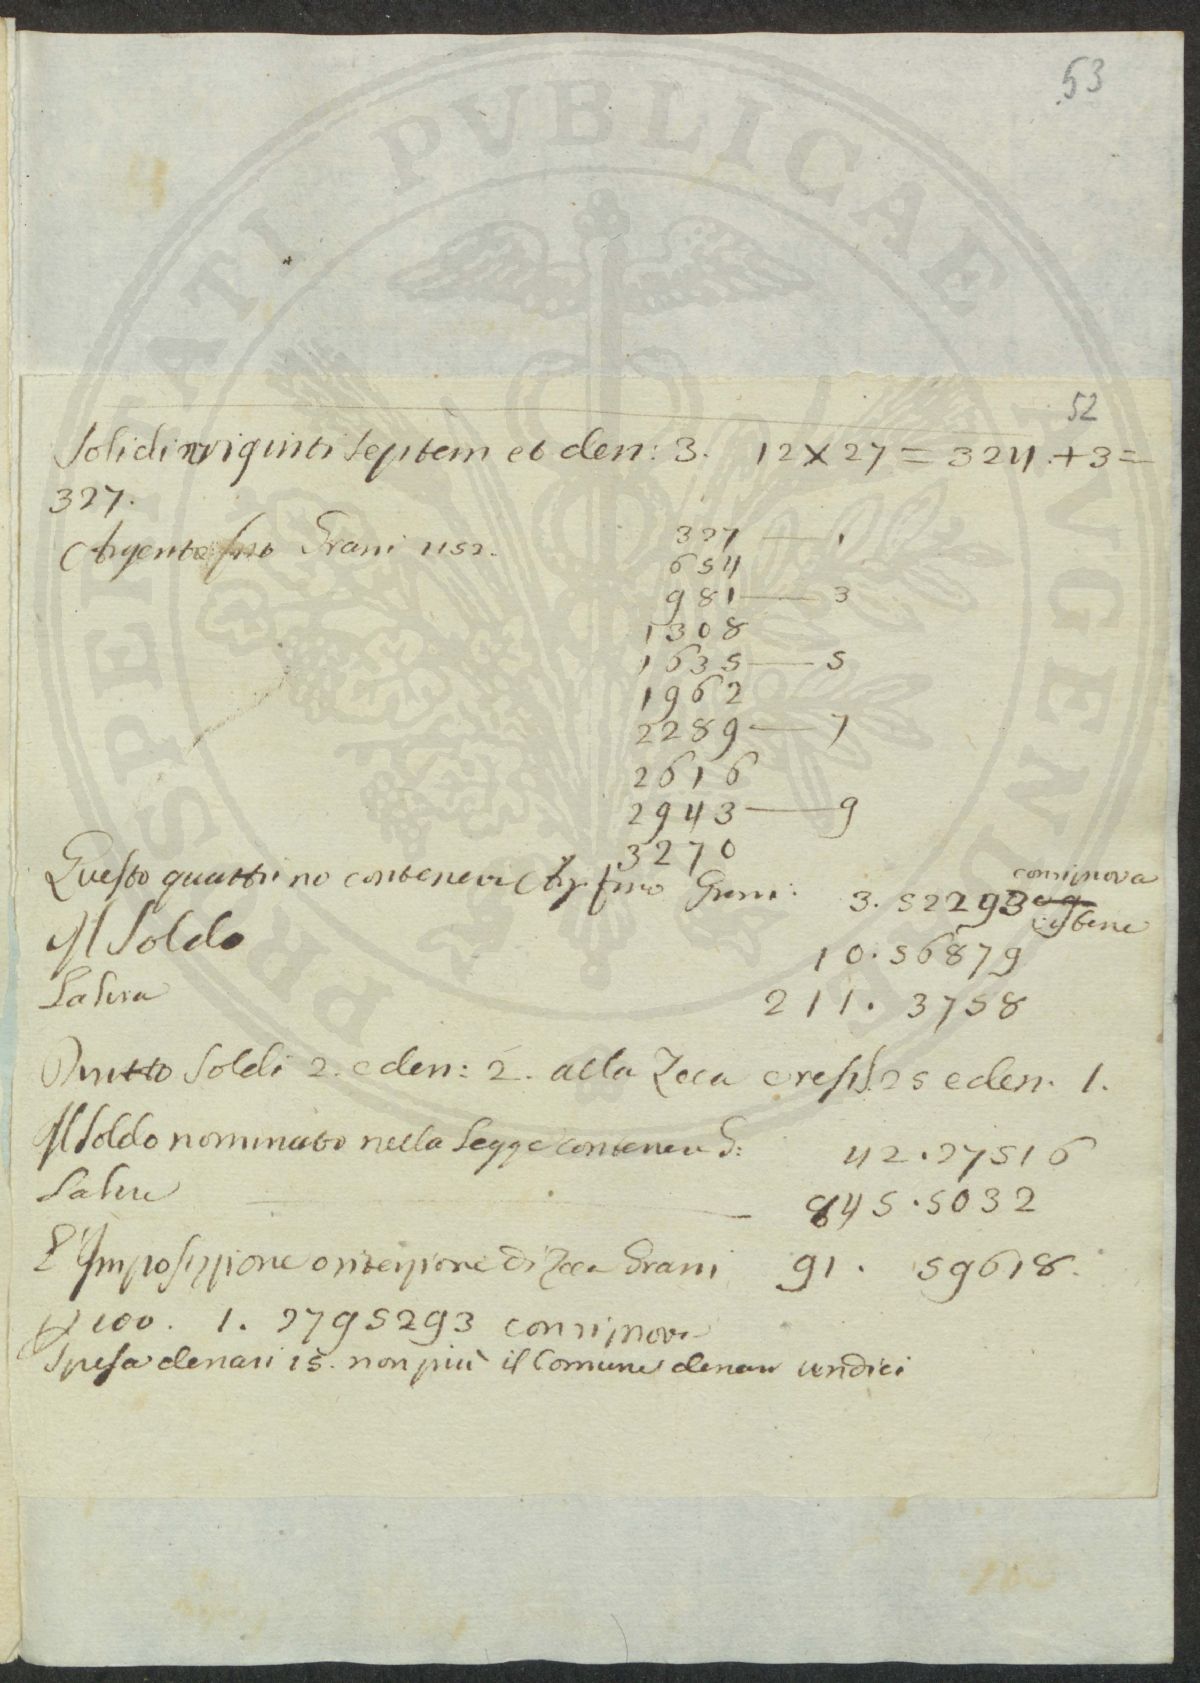 53
52
Solidi viginti septem et den: 3. 12 × 27 = 324. + 3 =
327.
Argento fino Grani 1152.
327 — 1
654
981 — 3
1308
1635 — 5
1962
2289 — 7
2616
2943 — 9
3270
Questo quattrino conteneva Arg. fino Grani: 3. 52293
con riprova
sta bene
Il Soldo 10. 56879
La lira 211. 3758
Soldi 2. e den: 2. alla Zecca e rest. S. 25 e den. 1.
Il Soldo nominato nella Legge conteneva G: 42. 27516
La lira — 845. 5032
L'Imposizione o ritenzione di Zecca Grani 91. 59618.
100. 1. 2795293 con riprova
Spesa denari 15. non più il Comune denari undici
PROSPERITATI PVBLICAE AVGENDAE